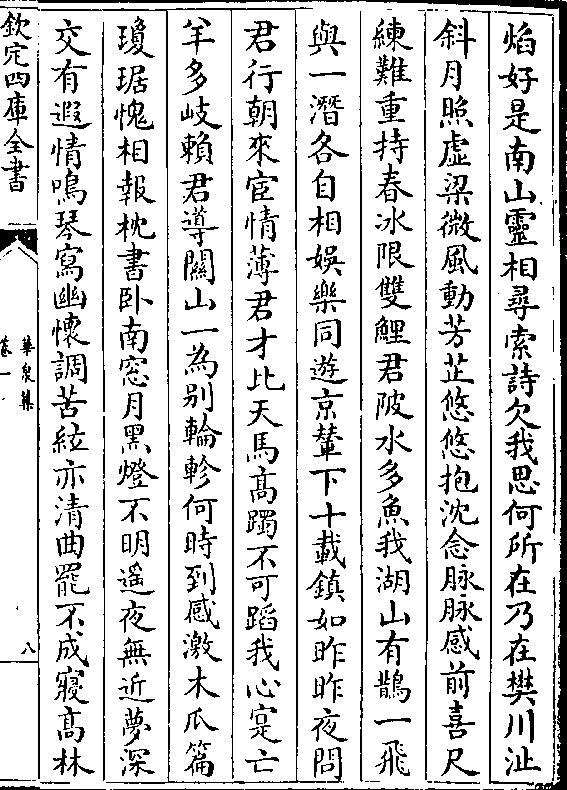 焰好是南山靈相尋索詩欠我思何所在乃在樊川沚
斜月照虛梁微風動芳芷悠悠抱沈念脉脉感前喜尺
練難重持春冰限雙鯉君陂水多魚我湖山有鵲一飛
與一潛各自相娯樂同遊京輦下十載鎮如昨昨夜問
君行朝來宦情薄君才比天馬髙躅不可蹈我心寔亡
羊多岐賴君導關山一為别輪軫何時到感激木瓜篇
瓊琚愧相報枕書卧南窓月黑燈不明遥夜無近夢深
交有遐情鳴琴寫幽懷調苦絃亦清曲罷不成寢髙林
欽定四庫全書
華泉集
卷一
八